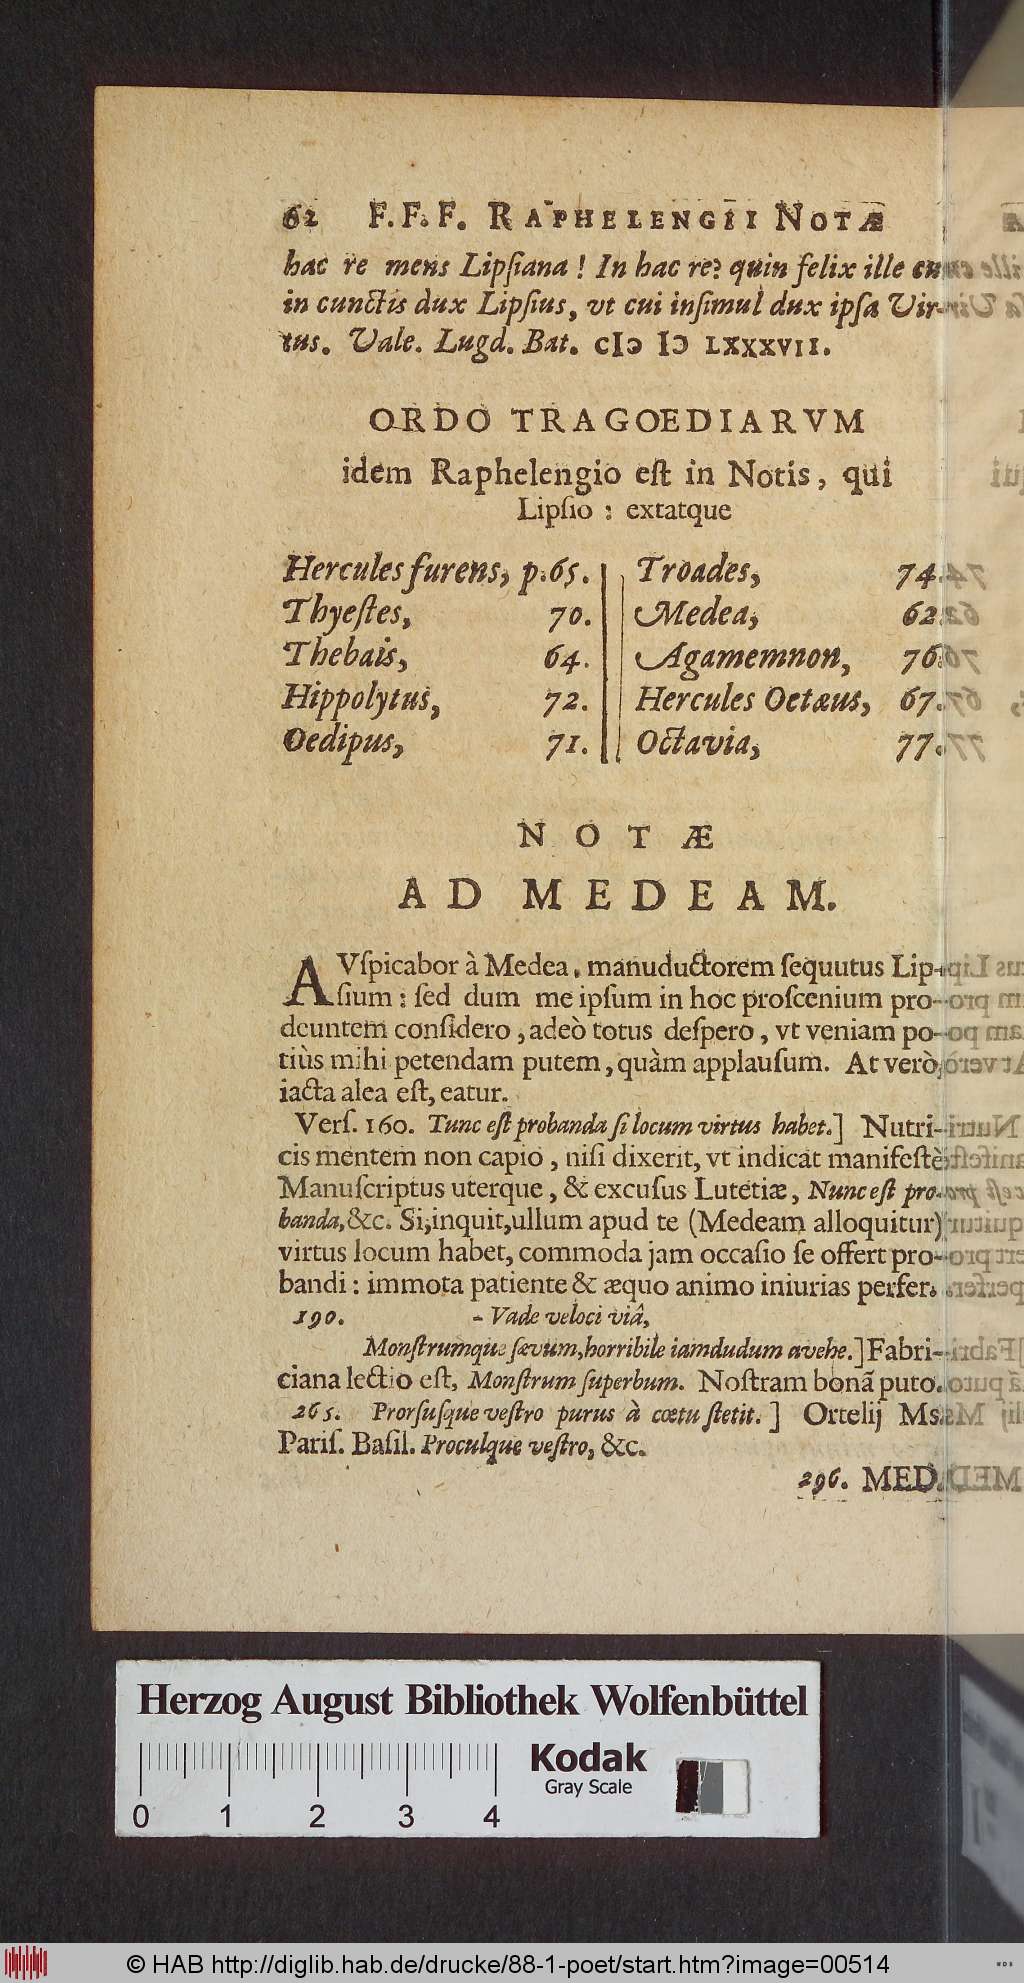 62 F. F. F. RAPHELENGII NOTÆ
hac re mens Lipſiana ! In hac re? quin felix ille
in cunctis dux Lipſius, vt cui inſimul dux ipſa Vir-
tus. Vale. Lugd. Bat. CIↃ IↃ LXXXVII.
ORDO TRAGOEDIARVM
idem Raphelengio eſt in Notis, qui
Lipſio : extatque
Hercules furens, p. 65. Troades, 74.
Thyeſtes, 70. Medea, 62.
Thebais, 64. Agamemnon, 76.
Hippolytus, 72. Hercules Oetæus, 67.
Oedipus, 71. Octavia, 77.
NOTÆ
AD MEDEAM.
AVſpicabor à Medea, manuductorem ſequutus Lip-
ſium : ſed dum me ipſum in hoc proſcenium pro-
deuntem conſidero, adeò totus deſpero, vt veniam po-
tiùs mihi petendam putem, quàm applauſum. At verò,
iacta alea eſt, eatur.
Verſ. 160. Tunc eſt probanda ſi locum virtus habet.] Nutri-
cis mentem non capio, niſi dixerit, vt indicat manifeſtè
Manuſcriptus uterque, & excuſus Lutetiæ, Nunc eſt pro-
banda, &c. Si, inquit, ullum apud te (Medeam alloquitur)
virtus locum habet, commoda jam occaſio ſe offert pro-
bandi : immota patiente & æquo animo iniurias perfer.
190. - Vade veloci viâ,
Monſtrumque ſævum, horribile iamdudum avehe.] Fabri-
ciana lectio eſt, Monſtrum ſuperbum. Noſtram bonã puto.
265. Prorſuſque veſtro purus à cœtu ſtetit.] Ortelij Ms.
Pariſ. Baſil. Proculque veſtro, &c.
296. MED.
Herzog August Bibliothek Wolfenbüttel
Kodak
Gray Scale
0 1 2 3 4
© HAB http://diglib.hab.de/drucke/88-1-poet/start.htm?image=00514